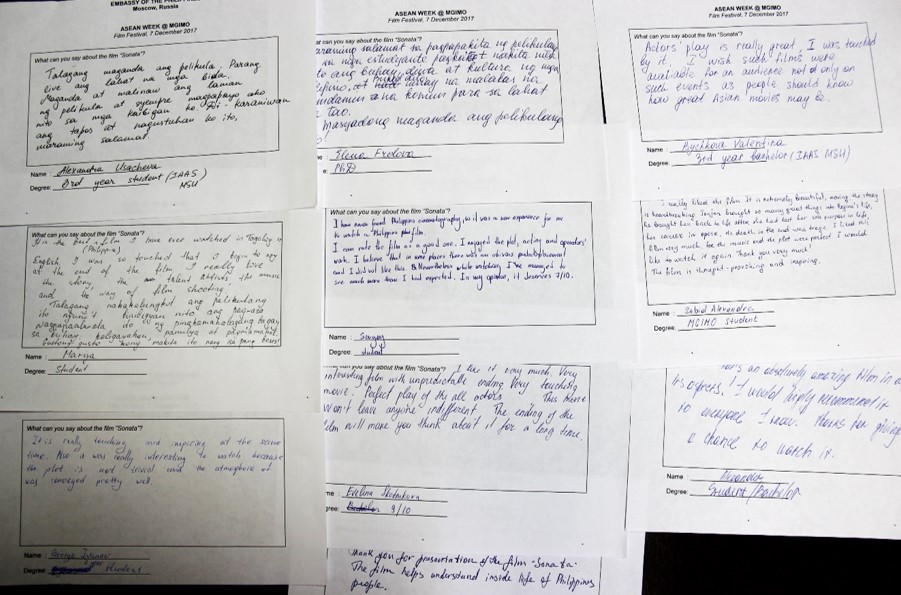 EMBASSY OF THE PHILIPPINES
Moscow, Russia
ASEAN WEEK @ MGIMO
Film Festival, 7 December 2017
What can you say about the film "Sonata"?
Talagang maganda ang pelikula. Parang
live ang lahat na mga bida.
Maganda at malinaw ang laman
ng pelikula at syempre magpapayo ako
nito sa mga kaibigan ko. Di-karaniwan
ang tapos at nagustuhan ko ito,
maraming salamat.
Name : Alexandra Usacheva
Degree: 3rd year student (IAAS
MSU
What can you say about the film "Sonata"?
film I have ever watched in Tagalog in
(Philippin)
English. I was so touched that I begin to cry
at the end of the film. I really love
the story, the talent actives, the music
and the way of film shooting.
Talagang ang pelikulang
ito ngunit binibigyan nito ang pag-asa
sa buhay, kaligayahan, pamilya at
Gustong gusto kong makita ito nang isa pang beses!
Name : Marisa
Degree: Student
What can you say about the film "Sonata"?
It is really touching and inspiring at the same
time. Also it was really interesting to watch because
the plot is not trivial and the atmosphere of
was conveyed pretty well.
Name : George Ivanov
Degree: student
ASEAN WEEK @ MGIMO
Film Festival, 7 December 2017
salamat sa pagpapakita ng pelikulay
na mga estudyante nakita nila
ang buhay at kultura ng mga
na malalas na
na komun para sa lahat
tao.
Masyadong maganda ang pelikulang
Elena Frolova
PhD
What can you say about the film "Sonata"?
I have never found Philippine cinematography, so it was a new experience for me
to watch a Philippin film.
I can rate the film as a good one. I enjoyed the plot, acting and operators'
work. I believe that in some places there was an obvious
and I did not like this. But nevertheless while watching, I've managed to
see much more than I had expected. In my opinion, it deserves 7/10.
Name :
Degree: student
can you say about the film "Sonata"? I like it very much. Very
interesting film with unpredictable ending. Very touching
movie. Perfect play of the all actors. This movie
won't leave anyone indifferent. The ending of the
film will make you think about it for a long time.
Name : Evelina
gree: 9/10
Thank you for presentation of the film "Sonata".
The film helps understand inside life of Philippines
people.
ASEAN WEEK @ MGIMO
Film Festival, 7 December 2017
What can you say about the film "Sonata"?
Actors' play is really great, I was touched
by it. I wish such films were
available for an audience not only on
such events as people should know
how great Asian movies may be.
Name : Bychkova Valentina
Degree: 3rd year bachelor (IAAS MSU)
I really liked the film. It is extremely beautiful, moving, the story
is heartbreaking. Jonjon brought so many great things into Regina's life,
he brought her back to life after she had lost her purpose in life,
her success in opera. His death in the end was tragic. I liked
film very much, for the music and the plot were perfect. I would
like to watch it again. Thank you very much!
The film is thought-provoking and inspiring.
Name : Zabid Alexandra
Degree: MGIMO student
an absolutely amazing film in all
its aspects. I would highly recommend it
to everyone I know. Thanks for giving
a chance to watch it.
Name : Alexander
Degree: Student/Bachelor